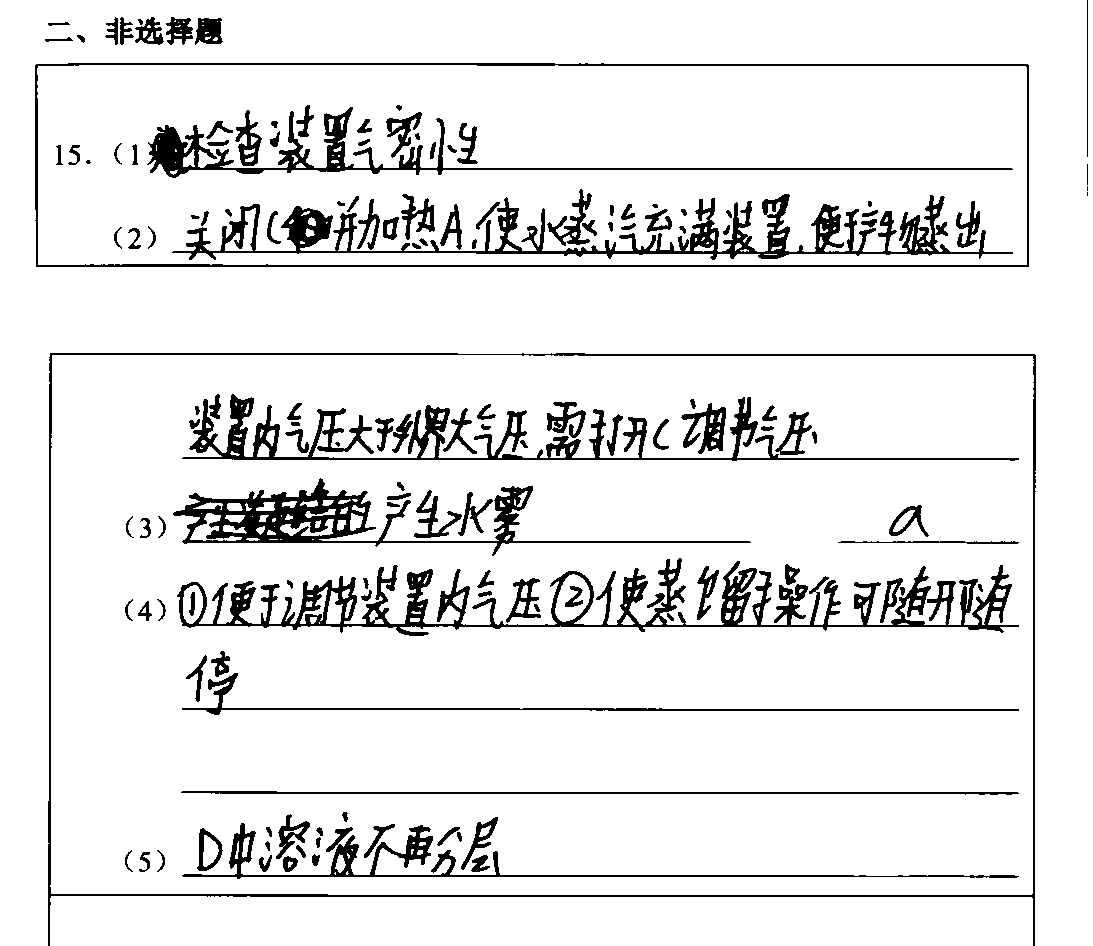 二、非选择题
15.（1）检查装置气密性
（2）关闭C并加热A,使水蒸汽充满装置,便于产物蒸出
装置内气压大于外界大气压,需打开C调节气压
（3）产生水雾 a
（4）①便于调节装置内气压②使蒸馏操作可随开随
停
（5）D中溶液不再分层